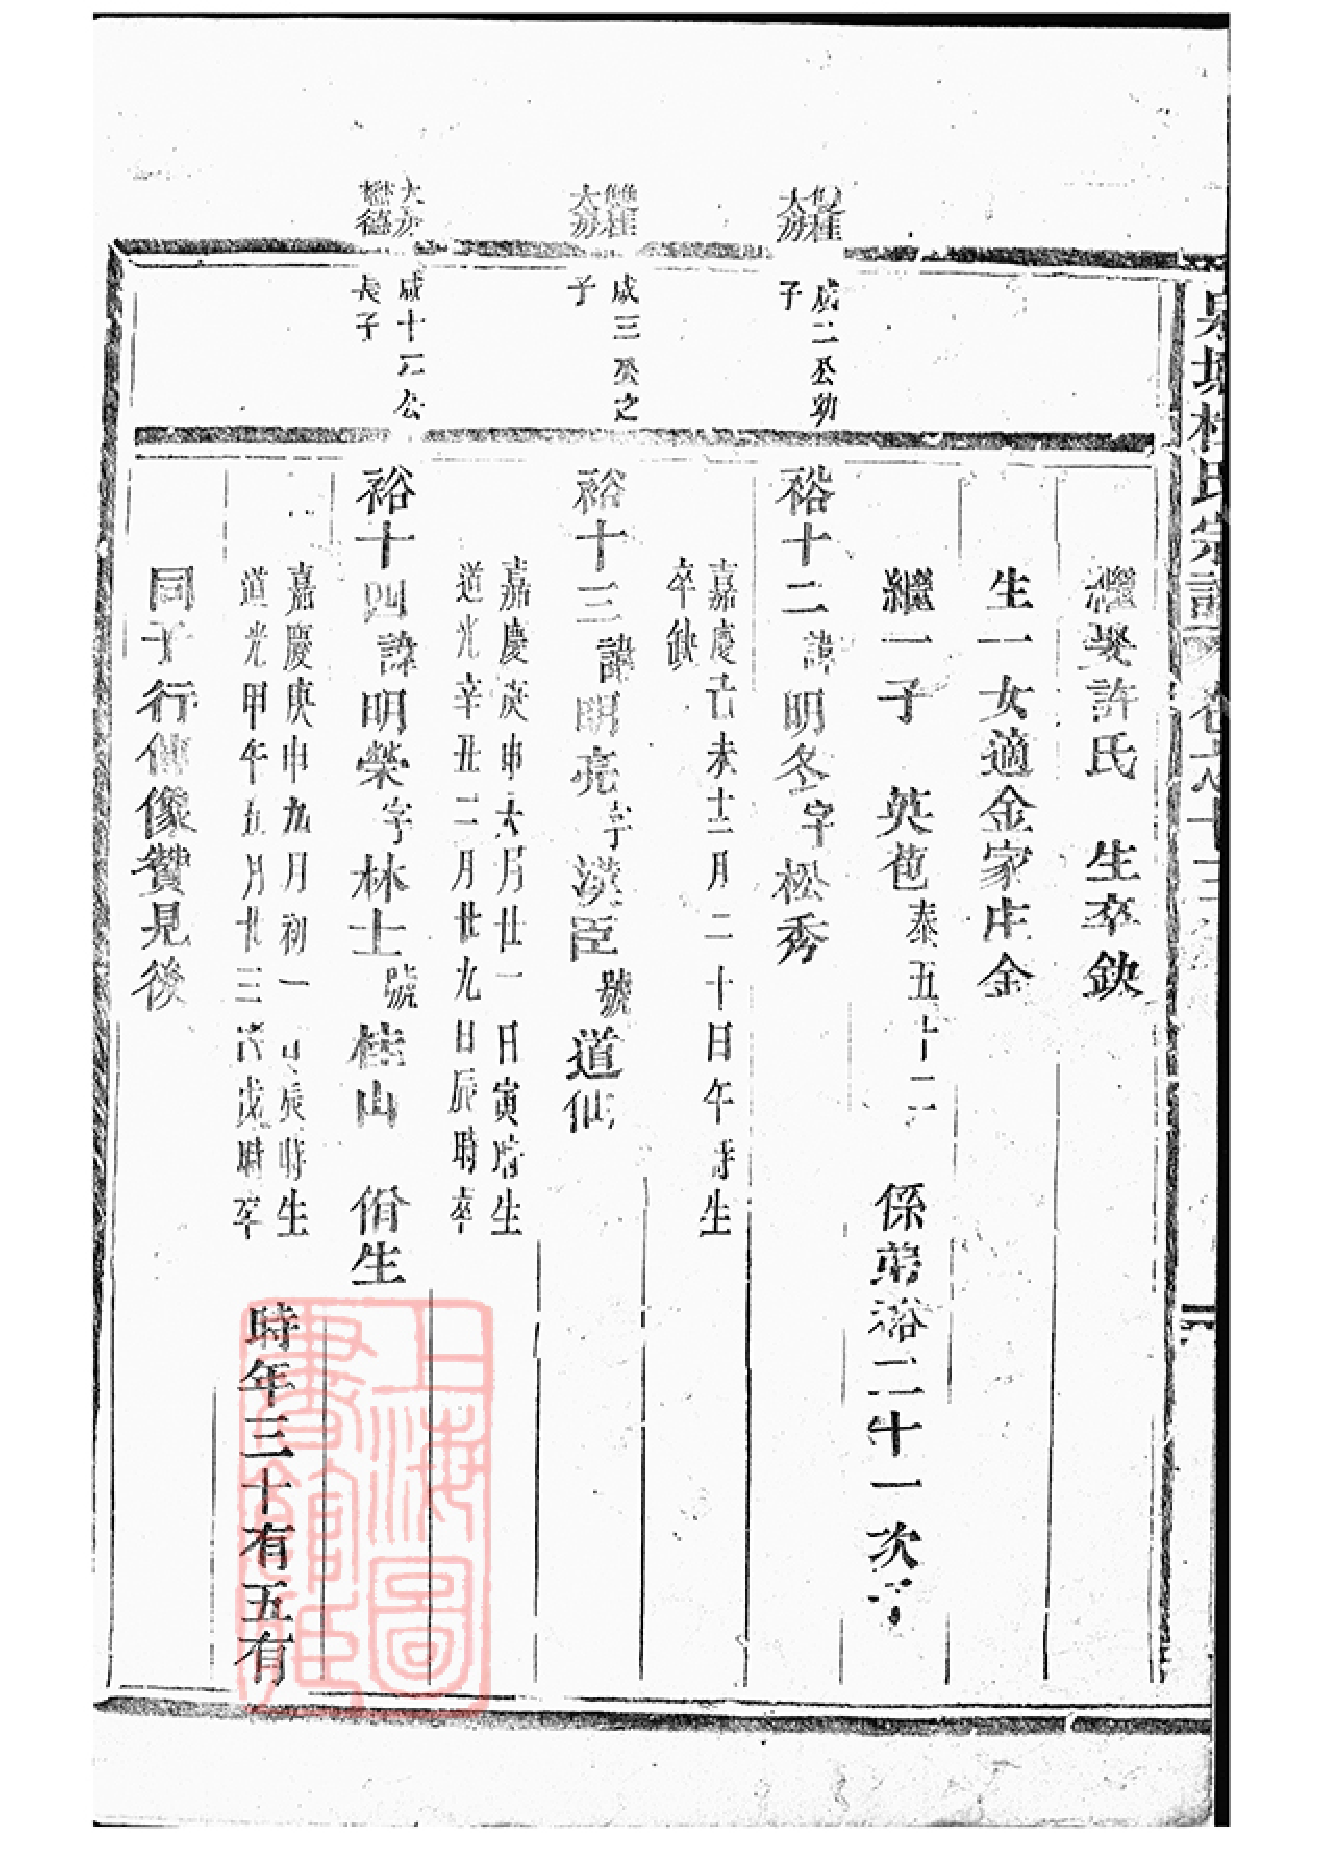 繼娶許氏　生卒缺
生一女適金家庄金
繼一子　英苞泰五十二　係弟裕二十一次子
雙桂
大房
成二公幼
子
裕十二諱明冬字松秀
嘉慶己未十二月二十日午時生
卒缺
雙桂
大房
成三公之
子
裕十三諱明亮字漢臣號道仙
嘉慶庚申六月廿一日寅時生
道光辛丑二月廿九日辰時卒
大房
懋德
成十二公
長子
裕十四諱明榮字林士號桂山　佾生
嘉慶庚申九月初一日辰時生
道光甲午五月廿三日戊時卒
時年三十有五有
同行傳像贊見後
氏宗譜
上海圖書館藏